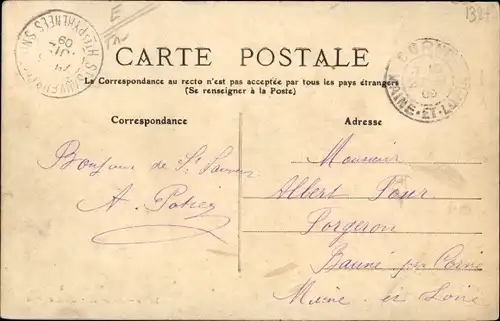 CARTE POSTALE
La Correspondance au recto n'est pas acceptée par tous les pays étrangers
(Se renseigner à la Poste)
Correspondance
Adresse
Bonjour de St Sauveur
A.
Monsieur
Albert
Forgeron
Bauné par Corné
Maine et Loire
CORNÉ
MAINE-ET-LOIRE
09
HTES PYRENEES
09